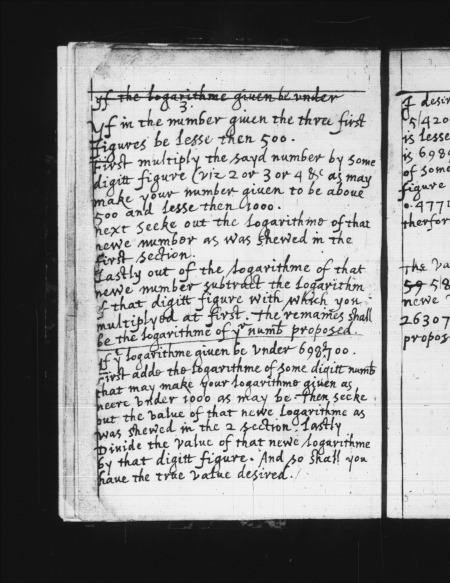 Yf the logarithme giuen be vnder
3.
Yf in the number giuen the three first
figures be lesse then 500.
First multiply the sayd number by some
digitt figure (viz 2 or 3 or 4 &c as may
make your number giuen to be aboue
500 and lesse then 1000.
next seeke out the Logarithme of that
newe number as was shewed in the
first section.
Lastly out of the Logarithme of that
newe number subtract the Logarithm
of that digitt figure with which you
multiplyed at first. The remaines shall
be the logarithme of yr numb proposed.
Yf yr logarithme giuen be vnder 698700.
First adde the Logarithme of some digitt numb
that may make your Logarithme giuen as
neere vnder 1000 as may be. Then seeke
out the value of that newe Logarithme as
was shewed in the 2 section. Lastly
Diuide the value of that newe Logarithme
by that digitt figure. And so shall you
haue the true value desired.
I desir
5420
is lesse
is 698
of some
figure
0.4771
therfor
The va
59 58
newe
26307
propos